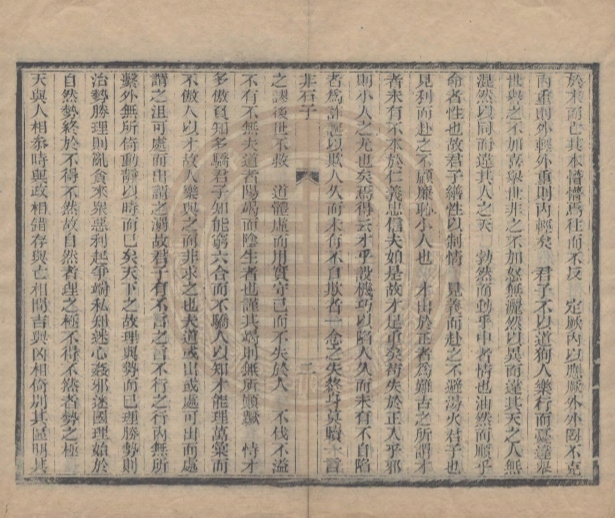 於末而亡其本懵懵焉往而不反　定厥內以應厥外外罔不克
內重則外輕外重則內輕矣　君子不以道狥人樂行而憂違舉
世與之不加喜舉世非之不加怒無溷然以異而違其天之人無
混然以同而違其人之天　勃然而動乎中者情也油然而順乎
命者性也故君子繕性以制情　見義而赴之不避湯火君子也
見利而赴之不顧廉恥小人也　才出於正者為難古之所謂才
者未有不本於仁義忠信夫如是故才是重矣苟失於正入乎邪
則小人之尤也矣焉得云才乎設機巧以陷人久而未有不自陷
者為詐誕以欺人久而未有不自欺者一念之失終身莫贖一言
非石子　三
之謬後世不救　道體虛而用實守己而不失於人　不伐不溢
不有不無夫道者陽竭而陰生者也謹其為則無所願歉　情才
多傲貧知多驕君子知能窮六合而不驕人以知才能理萬葉而
不傲人以才故人樂與之而非求之也夫道或出或處可出而處
謂之沮可處而出謂之溺故君子有不言之言不行之行內無所
繫外無所倚動靜以時而已矣天下之故理與勢而已理勝勢則
治勢勝理則亂貪來眾惡利起爭端私知迷心姦邪迷國理始於
自然勢終於不得不然故自然者理之極不得不然者勢之極
天與人相參時與政相錯存與亡相間吉與凶相倚別其區明其